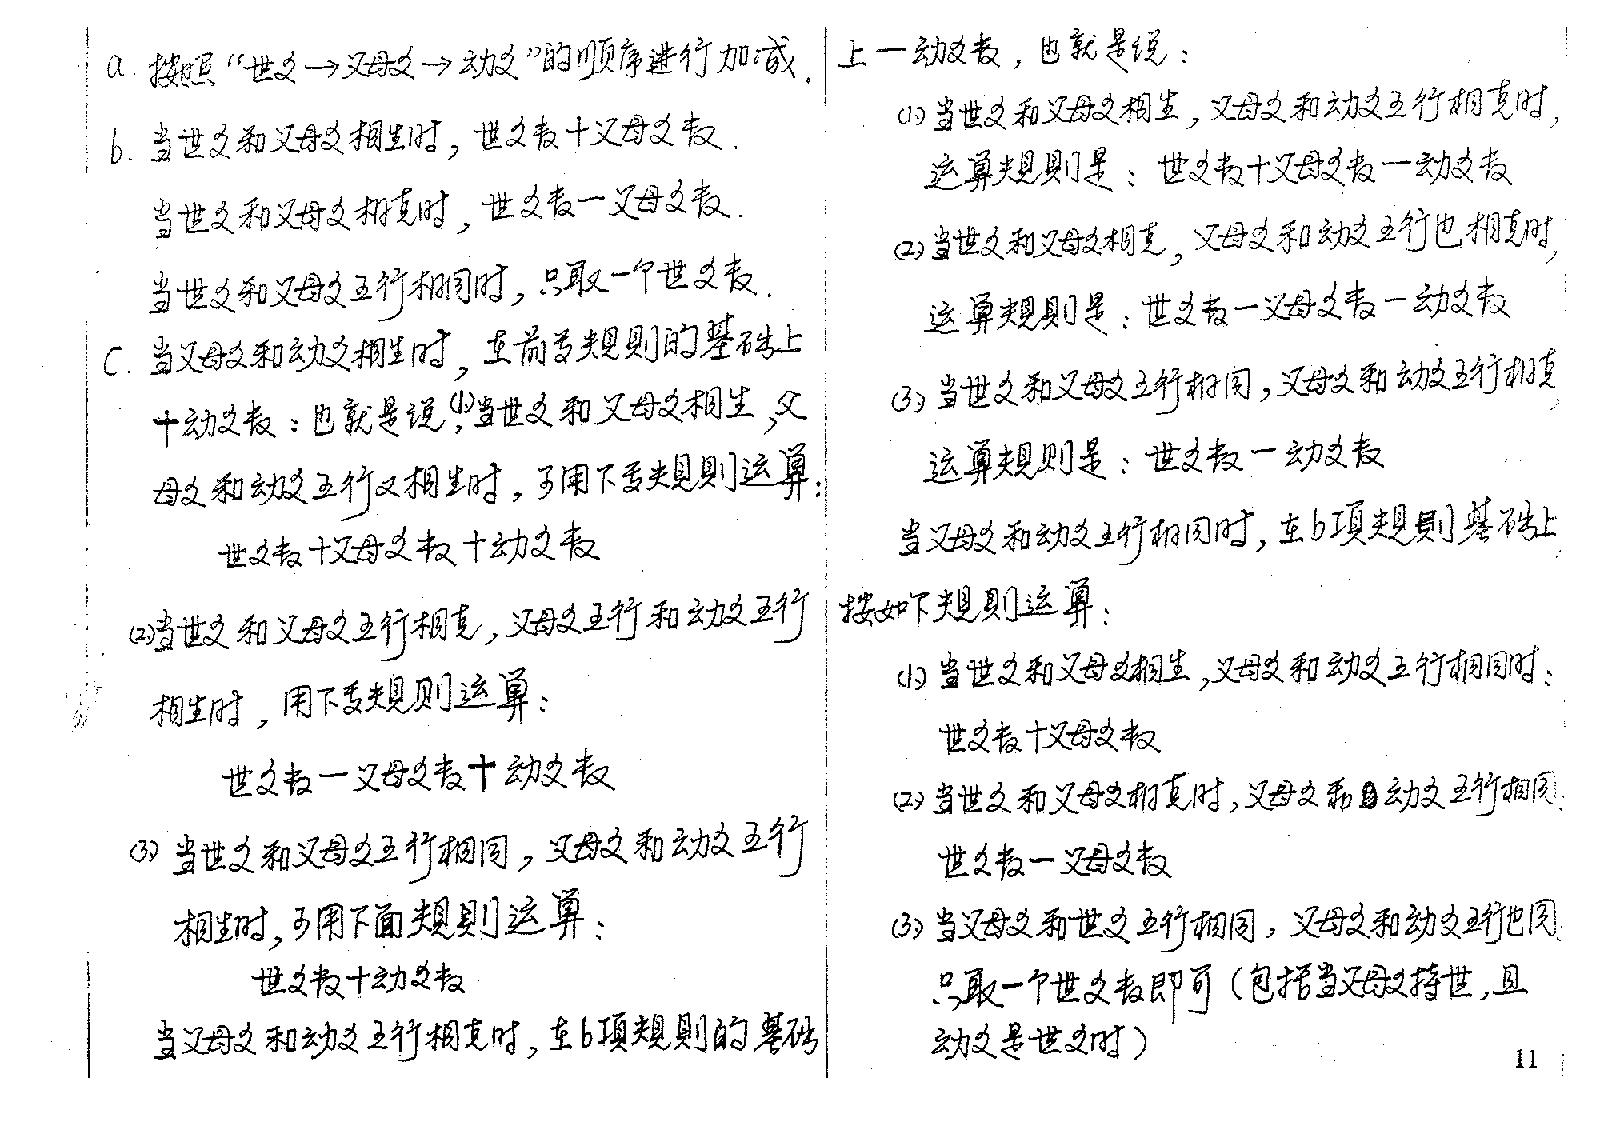 a. 按照“世爻→父母爻→动爻”的顺序进行加减.
b. 当世爻和父母爻相生时, 世爻数+父母爻数.
当世爻和父母爻相克时, 世爻数一父母爻数.
当世爻和父母爻五行相同时, 只取一个世爻数.
C. 当父母爻和动爻相生时, 在前面规则的基础上
+动爻数:也就是说,(1)当世爻和父母爻相生,父
母爻和动爻五行又相生时,可用下面规则运算:
世爻数+父母爻数+动爻数
(2)当世爻和父母爻五行相克,父母爻五行和动爻五行
相生时,用下面规则运算:
世爻数一父母爻数+动爻数
(3)当世爻和父母爻五行相同,父母爻和动爻五行
相生时,可用下面规则运算:
世爻数+动爻数
当父母爻和动爻五行相克时,在b项规则的基础
上一动爻数,也就是说:
(1)当世爻和父母爻相生,父母爻和动爻五行相克时,
运算规则是:世爻数+父母爻数一动爻数
(2)当世爻和父母爻相克,父母爻和动爻五行也相克时,
运算规则是:世爻数一父母爻数一动爻数
(3)当世爻和父母爻五行相同,父母爻和动爻五行相克,
运算规则是:世爻数一动爻数
当父母爻和动爻五行相同时,在b项规则基础上
按如下规则运算:
(1)当世爻和父母爻相生,父母爻和动爻五行相同时:
世爻数+父母爻数
(2)当世爻和父母爻相克时,父母爻和动爻五行相同.
世爻数一父母爻数
(3)当父母爻和世爻五行相同,父母爻和动爻五行也同.
只取一个世爻数即可(包括当父母爻持世,且
动爻是世爻时)
11